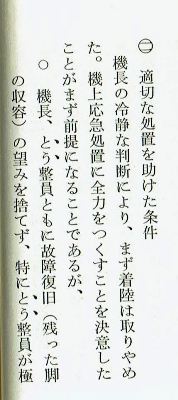 ㈡ 適切な処置を助けた条件
機長の冷静な判断により、まず着陸は取りやめ
た。機上応急処置に全力をつくすことを決意した
ことがまず前提になることであるが、
○ 機長、とう整員ともに故障復旧（残った脚
の収容）の望みを捨てず、特にとう整員が極